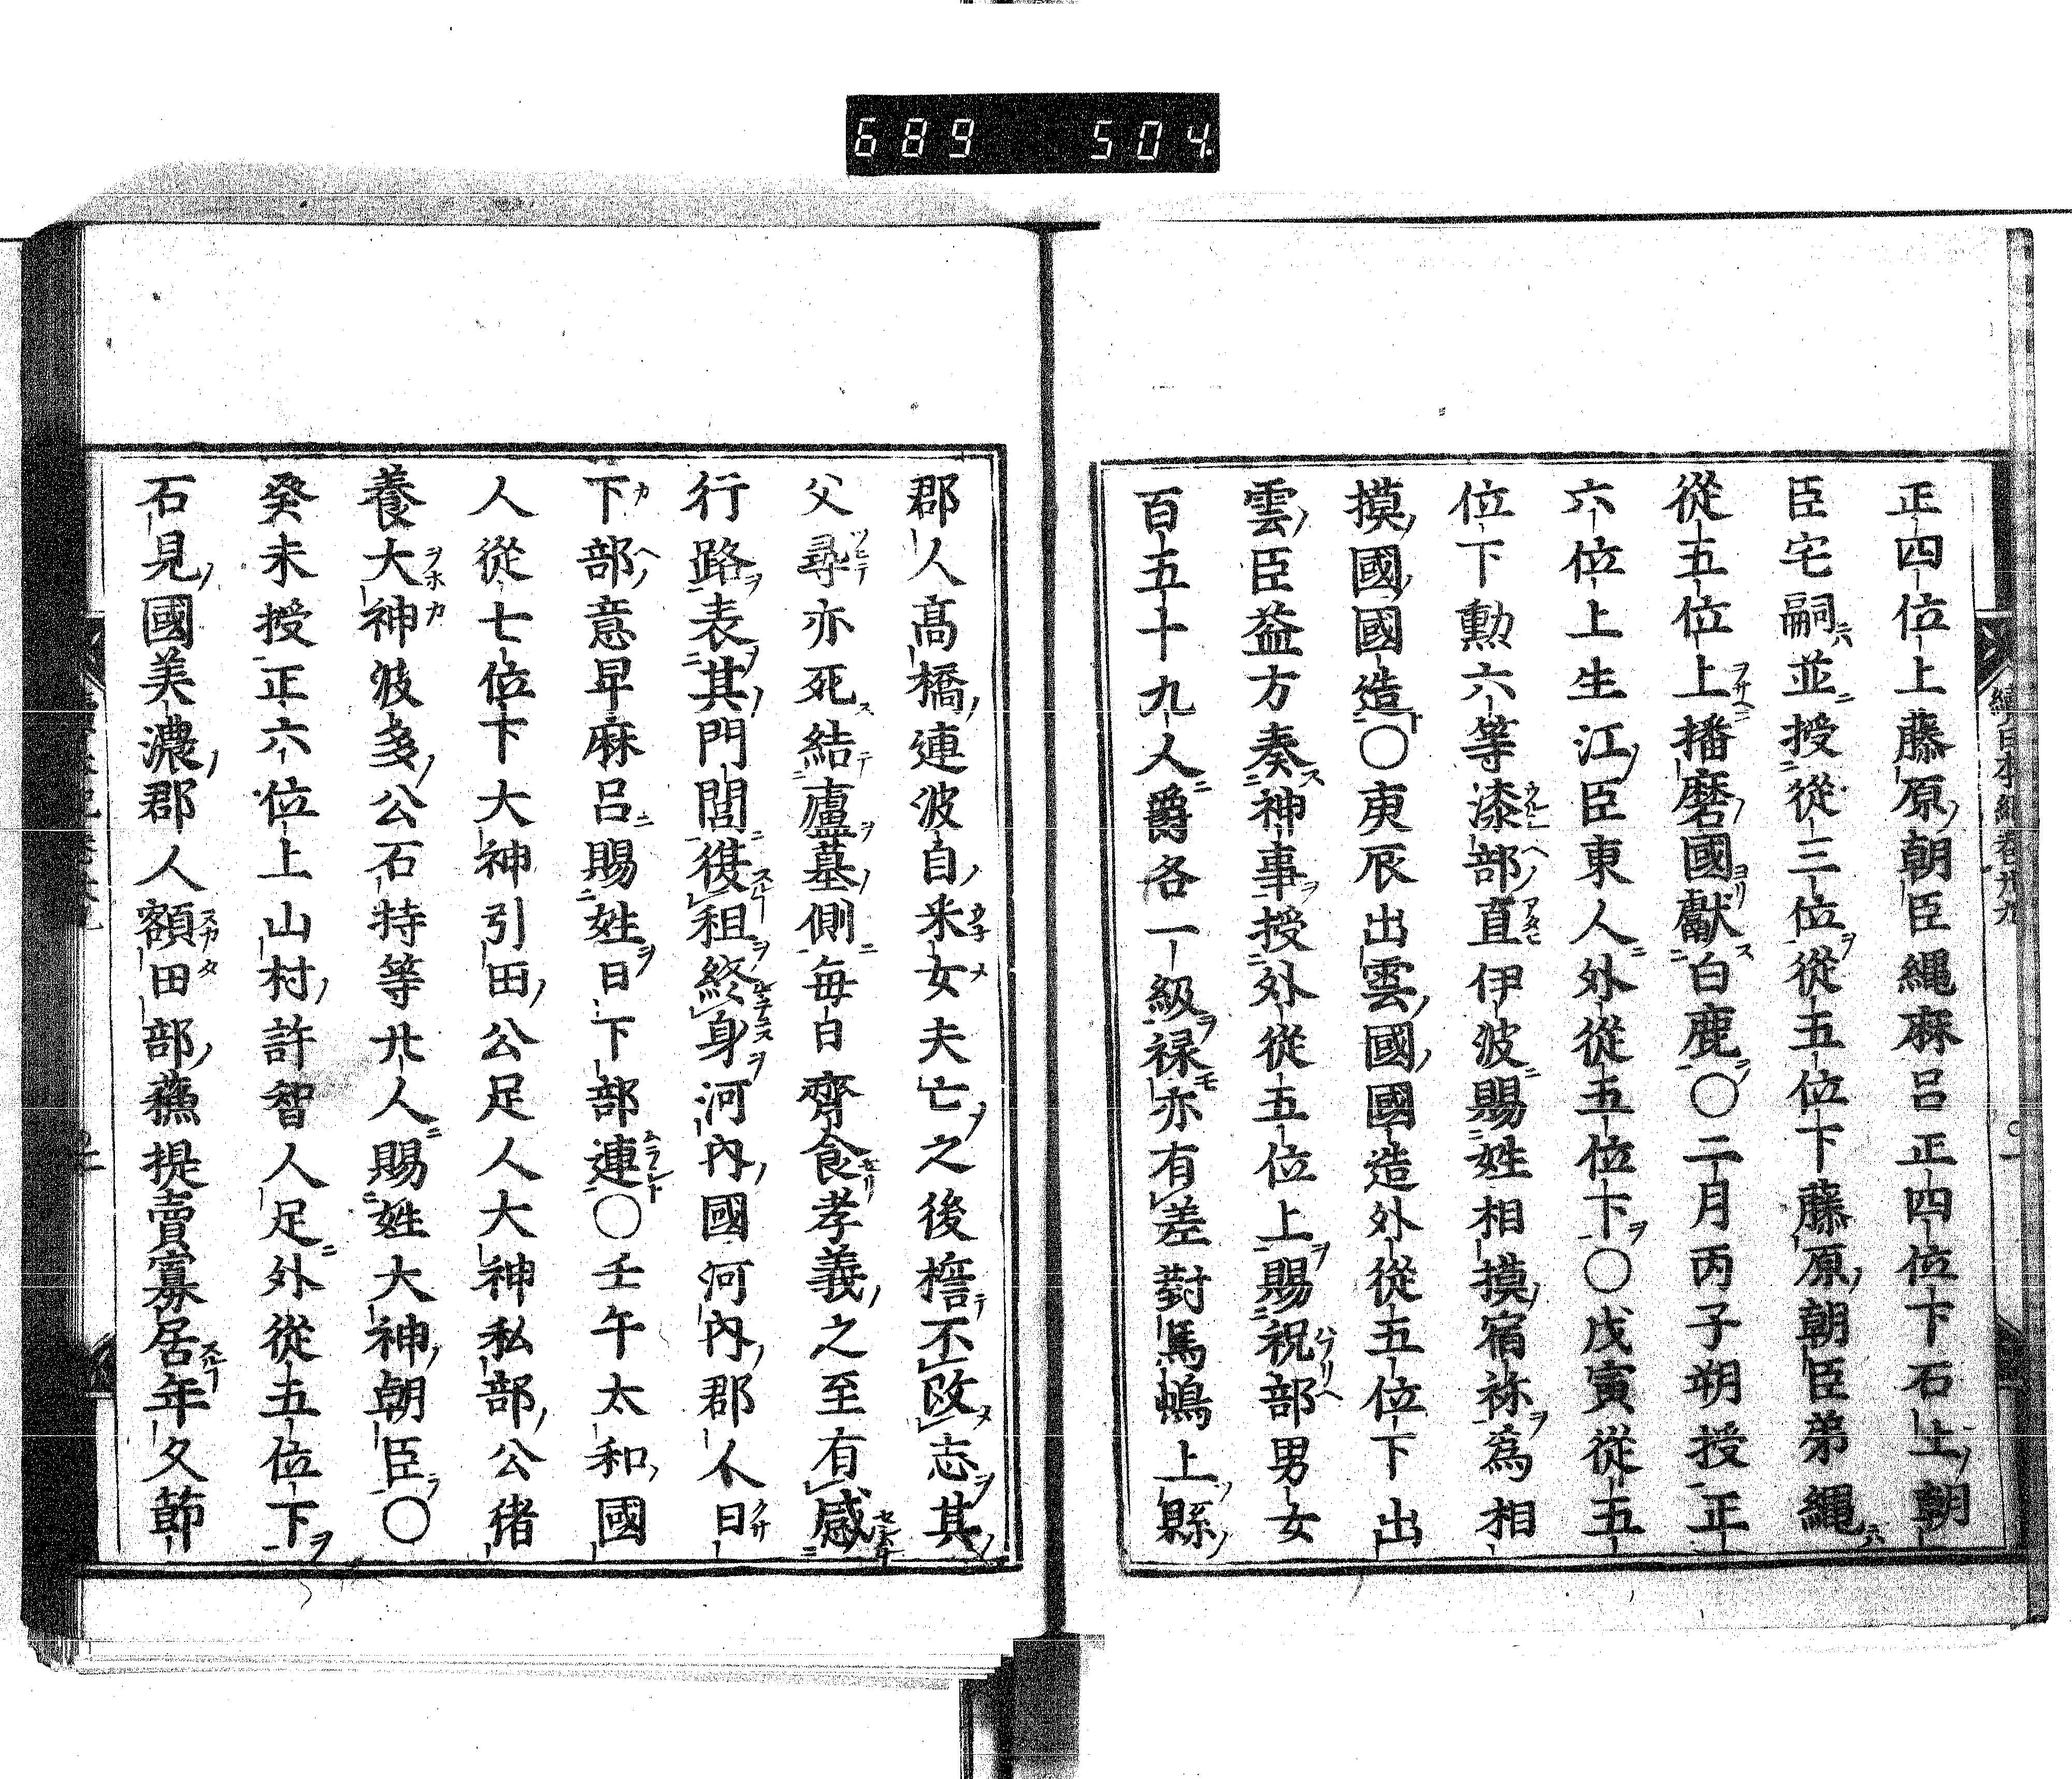 689 504
續日本紀卷廿九
正四位上藤原朝臣繩麻呂正四位下石上朝
臣宅嗣並授從三位從五位下藤原朝臣弟繩
從五位上播磨國獻白鹿〇二月丙子朔授正
六位上生江臣東人外從五位下〇戊寅從五
位下勳六等漆部直伊波賜姓相摸宿祢為相
摸國國造〇庚辰出雲國國造外從五位下出
雲臣益方奏神事授外從五位上賜祝部男女
百五十九人爵各一級禄亦有差對馬嶋上縣
郡人髙橋連波自米女夫亡之後誓不改志其
父尋亦死結廬墓側毎日齋食孝義之至有感
行路表其門閭復租終身河內國河內郡人日
下部意卑麻呂賜姓日下部連〇壬午太和國
人從七位下大神引田公足人大神私部公猪
養大神波多公石持等廾人賜姓大神朝臣〇
癸未授正六位上山村許智人足外從五位下
石見國美濃郡人額田部蘓提賣寡居年久節